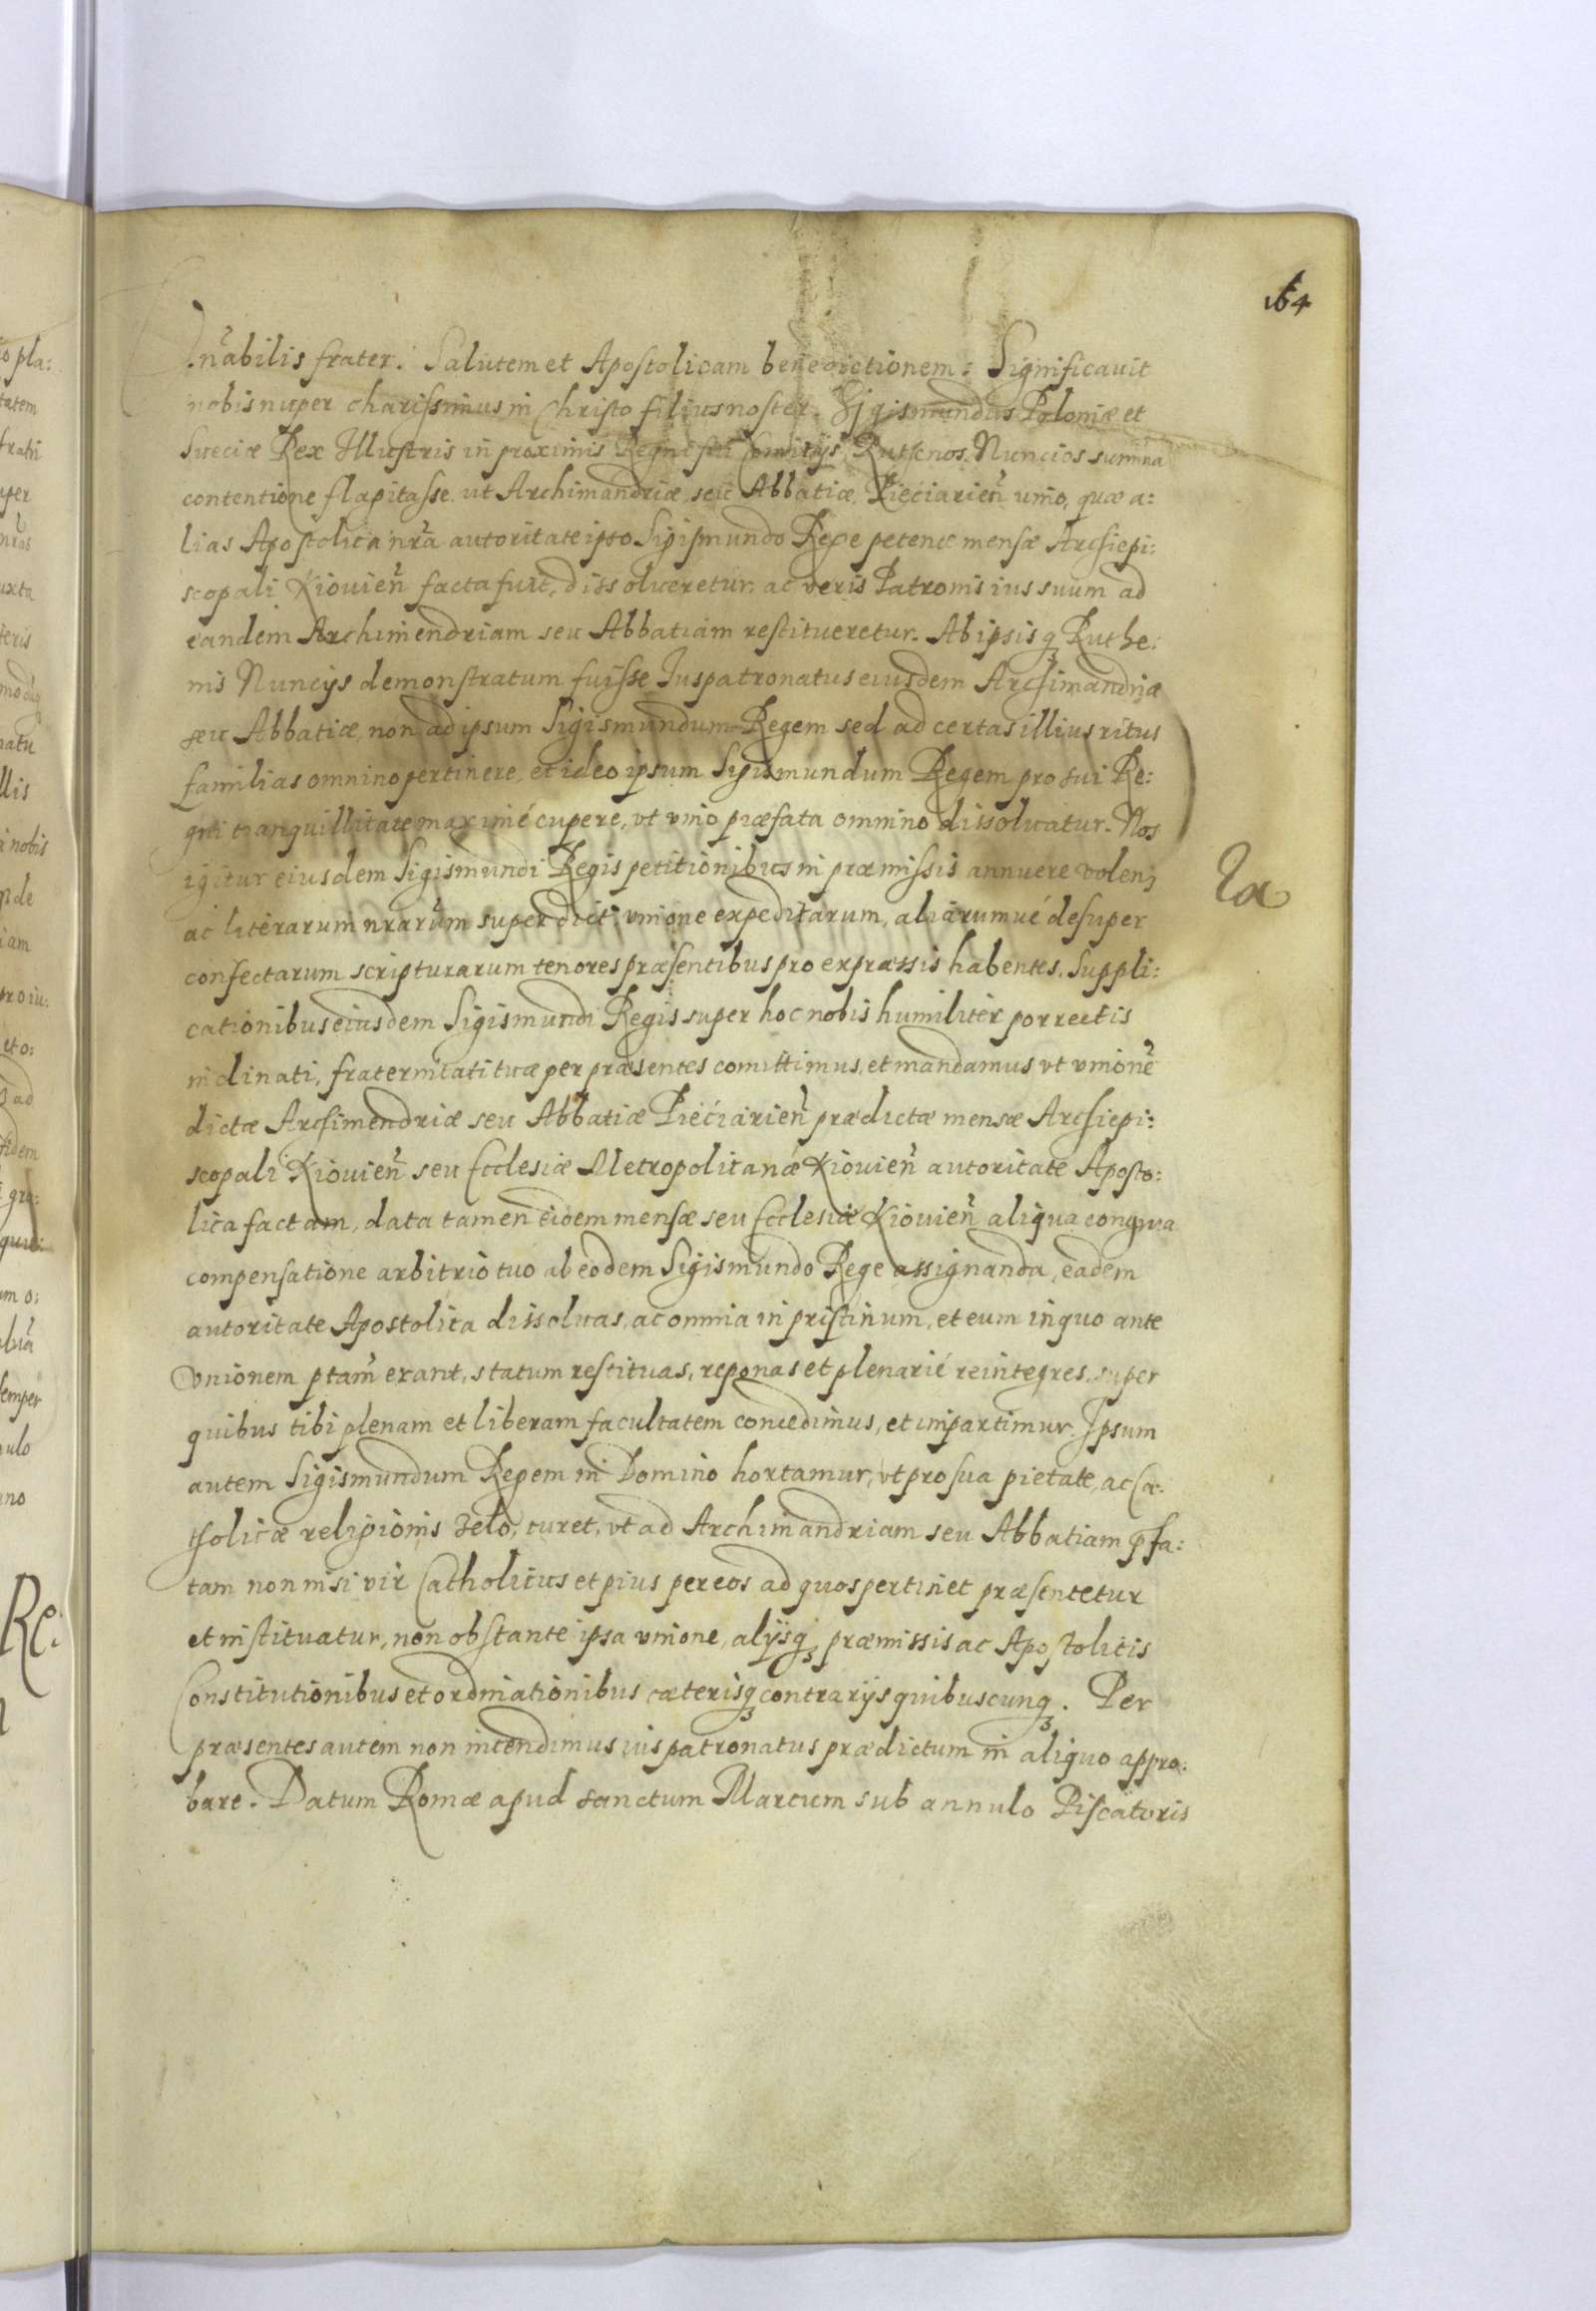 164
Vn̄abilis frater. Salutem et Apostolicam benedictionem. Significavit
nobis nuper charissimus in Christo filius noster Sigismundus Poloniæ et
Sueciæ Rex Illustris in proximis Regni sui Comitijs Ruthenos Nuncios summa
contentione flagitasse ut Archimandriæ seu Abbatiæ Pieciarien̄ unio, quæ a:
lias Apostolica nr̄a autoritate ipso Sigismundo Rege petente mensæ Archiepi:
scopali Kiovien̄ facta fuit, dissolveretur, ac veris Patronis ius suum ad
eandem Archimendriam seu Abbatiam restitueretur. Ab ipsisq Ruthe:
nis Nuncijs demonstratum fuisse Iuspatronatus eiusdem Archimandriæ
seu Abbatiæ non ad ipsum Sigismundum Regem sed ad certas illius ritus
familias omnino pertinere, et ideo ipsum Sigismundum Regem pro sui Re:
gni tranquillitate maximé cupere, ut unio præfata omnino dissolvatur. Nos
igitur eiusdem Sigismundi Regis petitionibus in præmissis annuere volen;
ac literarum nrarūm super dict: unione expeditarum, aliarumué desuper
confectarum scripturarum tenores præsentibus pro expressis habentes. Suppli:
cationibus eiusdem Sigismundi Regis super hoc nobis humiliter porrectis
inclinati, fraternitati tuæ per præsentes comittimus, et mandamus vt vnionē
dictæ Archimendriæ seu Abbatiæ Pieciarien̄ prædictæ mensæ Archiepi:
scopali Kiovien̄ seu Ecclesiæ Metropolitanæ Kiovien̄ autoritate Aposto:
lica factam, data tamen eidem mensæ seu Ecclesiæ Kiovien̄ aliqua congrua
compensatione arbitrio tuo ab eodem Sigismundo Rege assignanda, eadem
autoritate Apostolica dissolvas, ac omnia in pristinum, et eum in quo ante
Vnionem ptam̄ erant, statum restituas, reponas et plenarié reintegres, super
quibus tibi plenam et liberam facultatem concedimus, et impartimur. Ipsum
autem Sigismundum Regem in Domino hortamur, vt pro sua pietate, ac Ca:
tholicæ religionis zelo, curet, vt ad Archimandriam seu Abbatiam p̄fa:
tam non nisi vir Catholicus et pius per eos ad quos pertinet præsentetur
et instituatur, non obstante ipsa vnione, alijsq præmissis ac Apostolicis
Constitutionibus et ordinationibus cæterisq contrarijs quibuscunq. Per
præsentes autem non intendimus ius patronatus prædictum in aliquo appro:
bare. Datum Romæ apud sanctum Marcum sub annulo Piscatoris